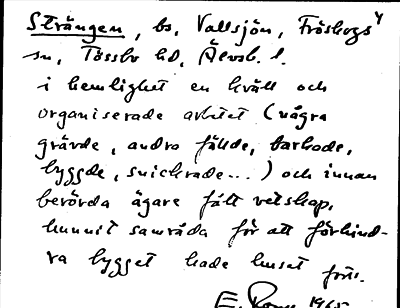 Strängen, bs, Vallsjön, Fröskogs
sn, Tössbo hd, Älvsb. l.
i hemlighet en kväll och
organiserade arbetet (några
grävde, andra fällde, barkade,
byggde, snickrade...) och innan
berörda ägare fått vetskap,
hunnit samråda för att förhind-
ra bygget hade huset
E. 1965